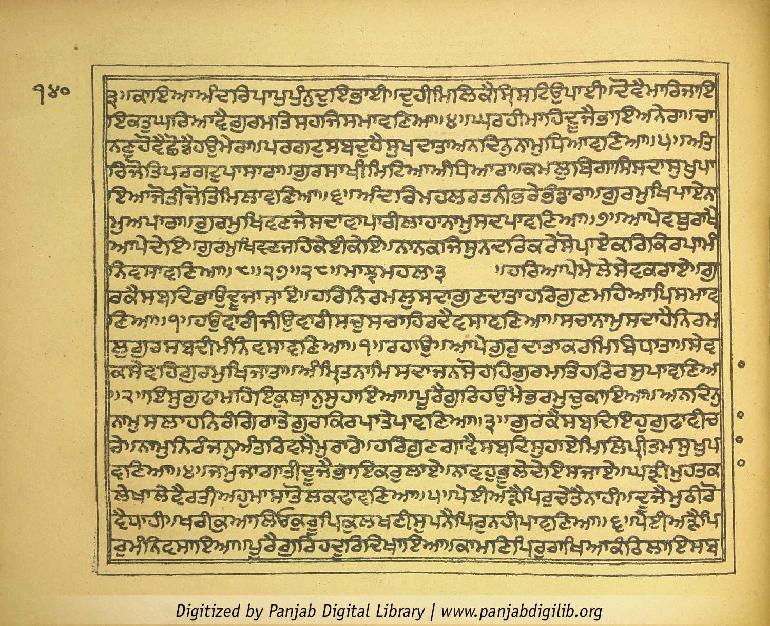 ੧੪੦
੩॥ਕਾਇਆਅੰਦਰਿਪਾਪੁਪੁੰਨੁਦੁਇਭਾਈ॥ਦੁਹੀਮਿਲਿਕੈਸ੍ਰਿਸਟਿਉਪਾਈ॥ਦੋਵੈਮਾਰਿਜਾਇ
ਇਕਤੁਘਰਿਆਵੈਗੁਰਮਤਿਸਹਜਿਸਮਾਵਣਿਆ॥੪॥ਘਰਹੀਮਾਹਿਦੂਜੈਭਾਇਅਨੇਰਾ॥ਚਾ
ਨਣੁਹੋਵੈਛੋਡੈਹਉਮੇਰਾ॥ਪਰਗਟੁਸਬਦੁਹੈਸੁਖਦਾਤਾਅਨਦਿਨੁਨਾਮੁਧਿਆਵਣਿਆ॥੫॥ਅੰਤ
ਰਿਜੋਤਿਪਰਗਟੁਪਾਸਾਰਾ॥ਗੁਰਸਾਖੀਮਿਟਿਆਅੰਧਿਆਰਾ॥ਕਮਲੁਬਿਗਾਸਿਸਦਾਸੁਖੁਪਾ
ਇਆਜੋਤੀਜੋਤਿਮਿਲਾਵਣਿਆ॥੬॥ਅੰਦਰਿਮਹਲਰਤਨੀਭਰੇਭੰਡਾਰਾ॥ਗੁਰਮੁਖਿਪਾਏਨਾ
ਮੁਅਪਾਰਾ॥ਗੁਰਮੁਖਿਵਣਜੇਸਦਾਵਾਪਾਰੀਲਾਹਾਨਾਮੁਸਦਪਾਵਣਿਆ॥੭॥ਆਪੇਵਥੁਰਾਖੈ
ਆਪੇਦੇਇ॥ਗੁਰਮੁਖਿਵਣਜਹਿਕੇਈਕੇਇ॥ਨਾਨਕਜਿਸੁਨਦਰਿਕਰੇਸੋਪਾਏਕਰਿਕਿਰਪਾਮੰ
ਨਿਵਸਾਵਣਿਆ॥੮॥੨੭॥੨੮॥ਮਾਝਮਹਲਾ੩ ॥ਹਰਿਆਪੇਮੇਲੇਸੇਵਕਰਾਏ॥ਗੁ
ਰਕੈਸਬਦਿਭਾਉਦੂਜਾਜਾਏ॥ਹਰਿਨਿਰਮਲੁਸਦਾਗੁਣਦਾਤਾਹਰਿਗੁਣਮਹਿਆਪਿਸਮਾਵ
ਣਿਆ॥੧॥ਹਉਵਾਰੀਜੀਉਵਾਰੀਸਚੁਸਚਾਹਿਰਦੈਵਸਾਵਣਿਆ॥ਸਚਾਨਾਮੁਸਦਾਹੈਨਿਰਮ
ਲੁਗੁਰਸਬਦੀਮੰਨਿਵਸਾਵਣਿਆ॥੧॥ਰਹਾਉ॥ਆਪੇਗੁਰੁਦਾਤਾਕਰਮਿਬਿਧਾਤਾ॥ਸੇਵ
ਕਸੇਵਹਿਗੁਰਮੁਖਿਜਾਤਾ॥ਅੰਮ੍ਰਿਤਨਾਮਿਸਦਾਜਨਸੋਹਹਿਗੁਰਮਤਿਹਰਿਰਸੁਪਾਵਣਿਆ
॥੨॥ਇਸੁਗੁਫਾਮਹਿਇਕੁਥਾਨੁਸੁਹਾਇਆ॥ਪੂਰੈਗੁਰਿਹਉਮੈਭਰਮੁਚੁਕਾਇਆ॥ਅਨਦਿਨੁ
ਨਾਮੁਸਲਾਹਨਿਰੰਗਿਰਾਤੇਗੁਰਕਿਰਪਾਤੇਪਾਵਣਿਆ॥੩॥ਗੁਰਕੈਸਬਦਿਇਹੁਗੁਫਾਵੀਚਾ
ਰੇ॥ਨਾਮੁਨਿਰੰਜਨੁਅੰਤਰਿਵਸੈਮੁਰਾਰੇ॥ਹਰਿਗੁਣਗਾਵੈਸਬਦਿਸੁਹਾਏਮਿਲਿਪ੍ਰੀਤਮਸੁਖੁਪਾ
ਵਣਿਆ॥੪॥ਜਮੁਜਾਗਾਤੀਦੂਜੈਭਾਇਕਰੁਲਾਏ॥ਨਾਵਹੁਭੂਲੇਦੇਇਸਜਾਏ॥ਘੜੀਮੁਹਤਕਾ
ਲੇਖਾਲੇਵੈਰਤੀਅਹੁਮਾਸਾਤੋਲਕਢਾਵਣਿਆ॥੫॥ਪੇਈਅੜੈਪਿਰੁਚੇਤੇਨਾਹੀ॥ਦੂਜੈਮੁਠੀਰੋ
ਵੈਧਾਹੀ॥ਖਰੀਕੁਆਲਿਓਕੁਰੂਪਿਕੁਲਖਣੀਸੁਪਨੈਪਿਰੁਨਹੀਪਾਵਣਿਆ॥੬॥ਪੇਈਅੜੈਪਿ
ਰੁਮੰਨਿਵਸਾਇਆ॥ਪੂਰੈਗੁਰਿਹਦੂਰਿਦਿਖਾਇਆ॥ਕਾਮਣਿਪਿਰੁਰਾਖਿਆਕੰਠਿਲਾਇਸਬ
Digitized by Panjab Digital Library | www.panjabdigilib.org